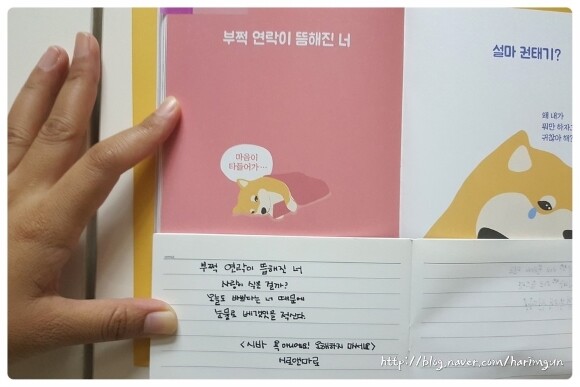 부쩍 연락이 뜸해진 너
마음이
타들어가…
설마 권태기?
왜 내가
뭐만 하자
귀찮아 해?
부쩍 연락이 뜸해진 너
사랑이 식은 걸까?
오늘도 바쁘다는 너 때문에
눈물로 베갯잇을 적신다.
<시바 욕 아니에요! 오해하지 마세요>
http://blog.naver.com/harimgun